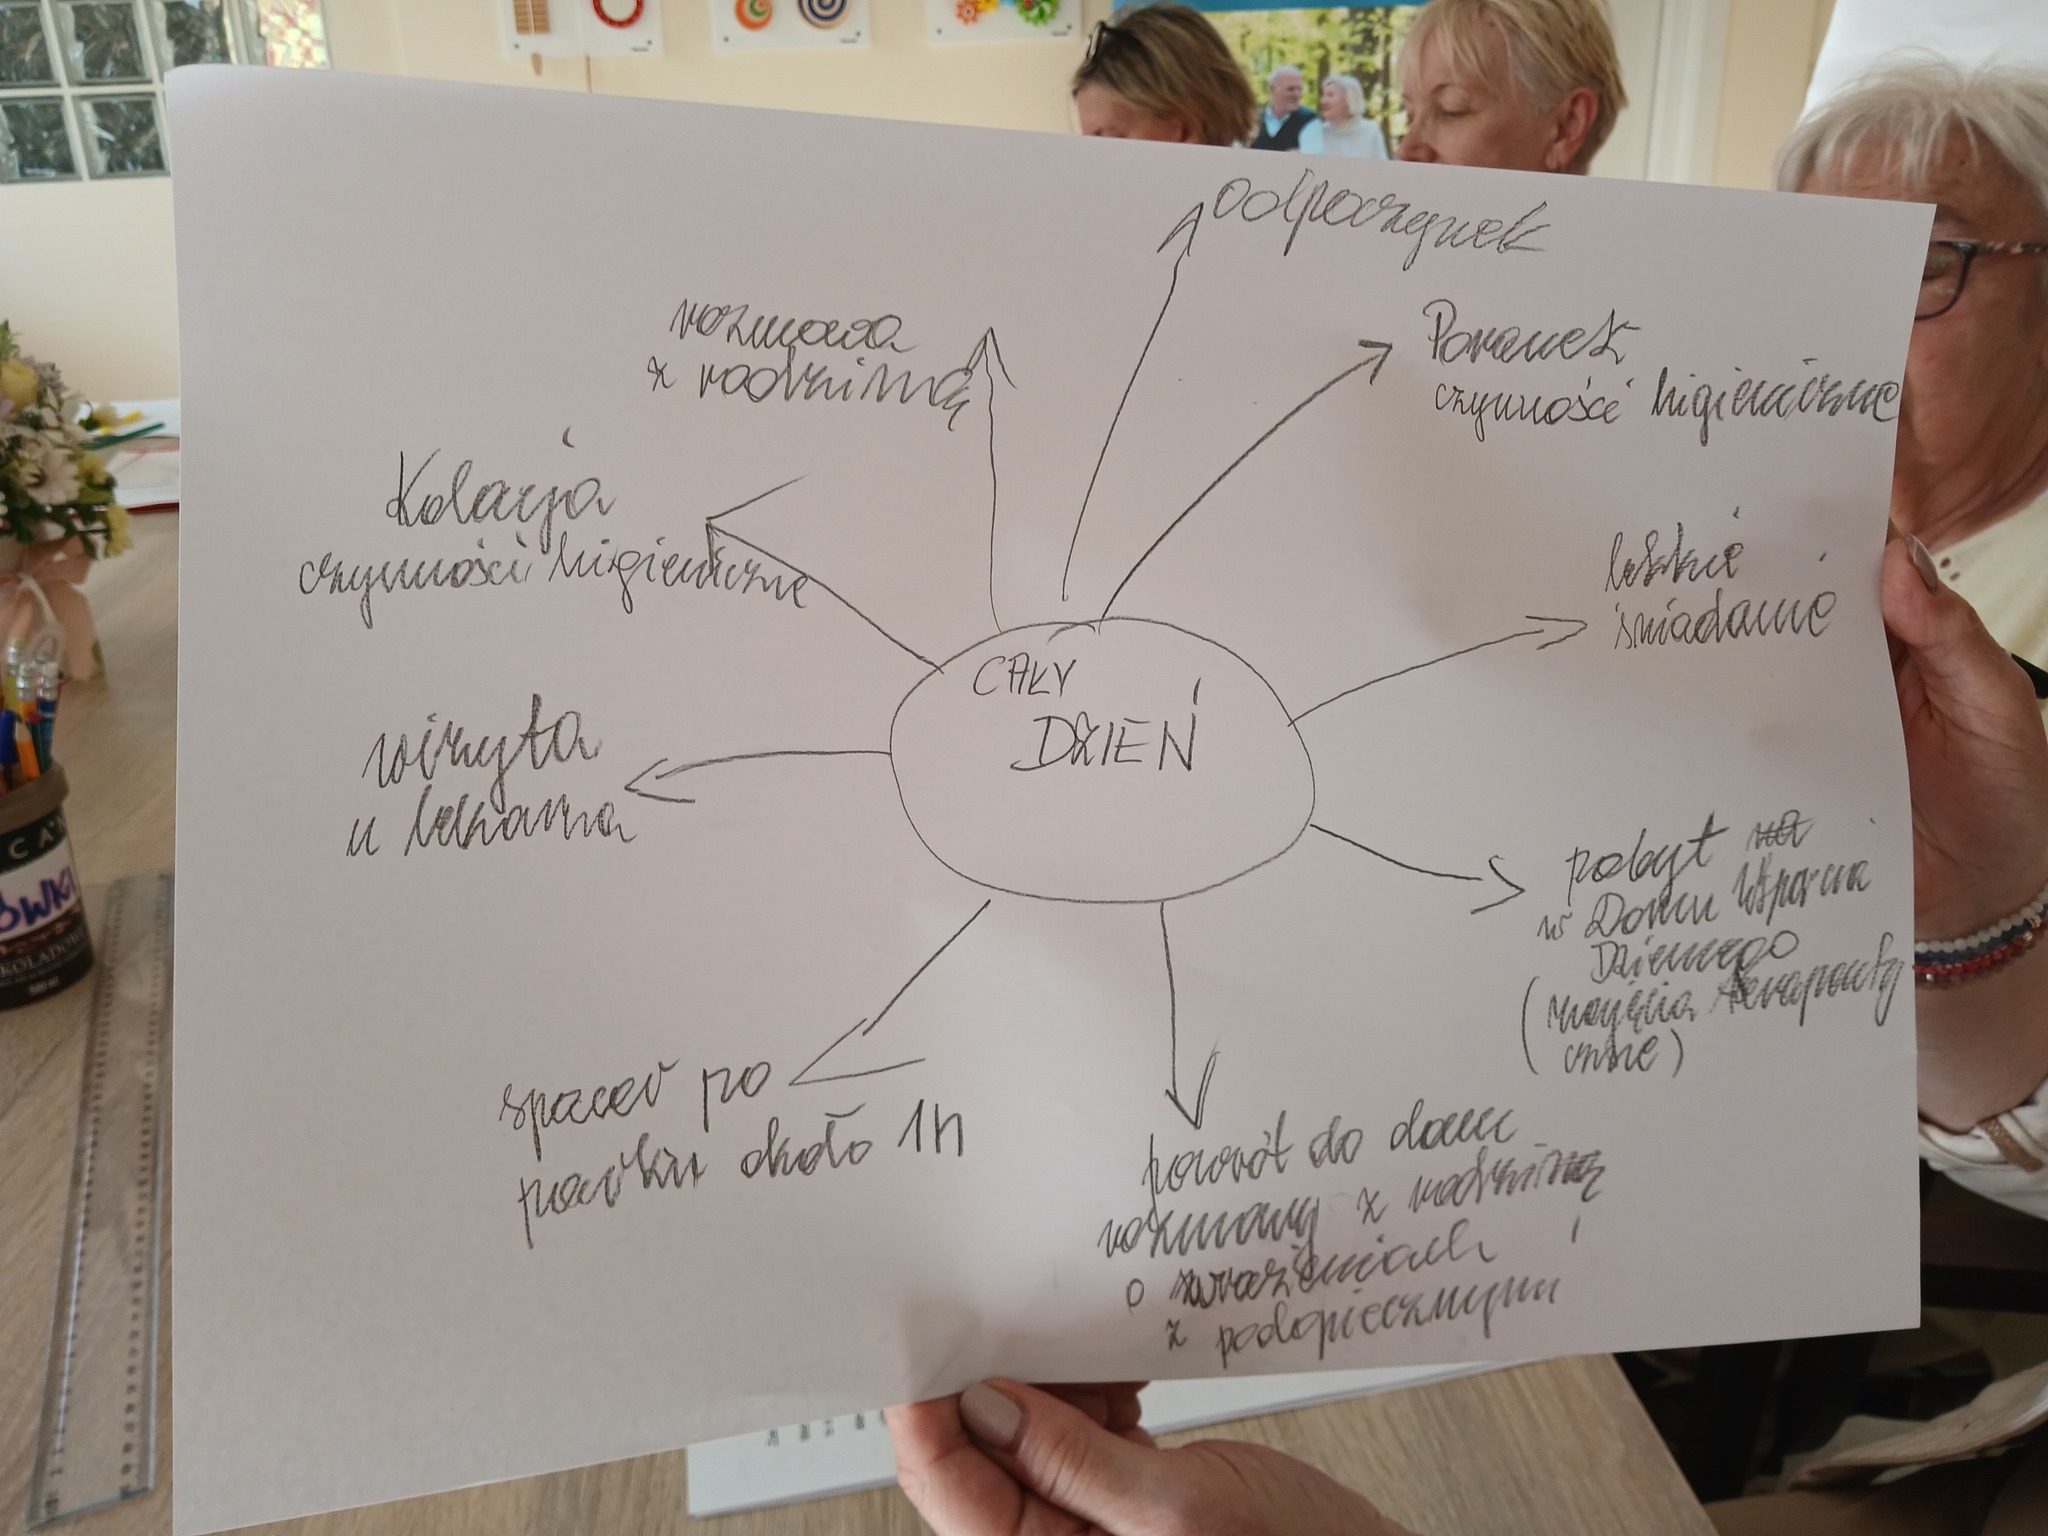 odpoczynek
Poranek
czynności higieniczne
lekkie
śniadanie
pobyt na
w Domu Wsparcia
Dziennego
(zajęcia terapeuty
czne)
powrót do domu
rozmowy z rodziną
o wrażeniach
z podopiecznymi
spacer po
parku około 1h
wizyta
u lekarza
Kolacja
czynności higieniczne
rozmowa
z rodziną
CAŁY
DZIEŃ
ÓWKI